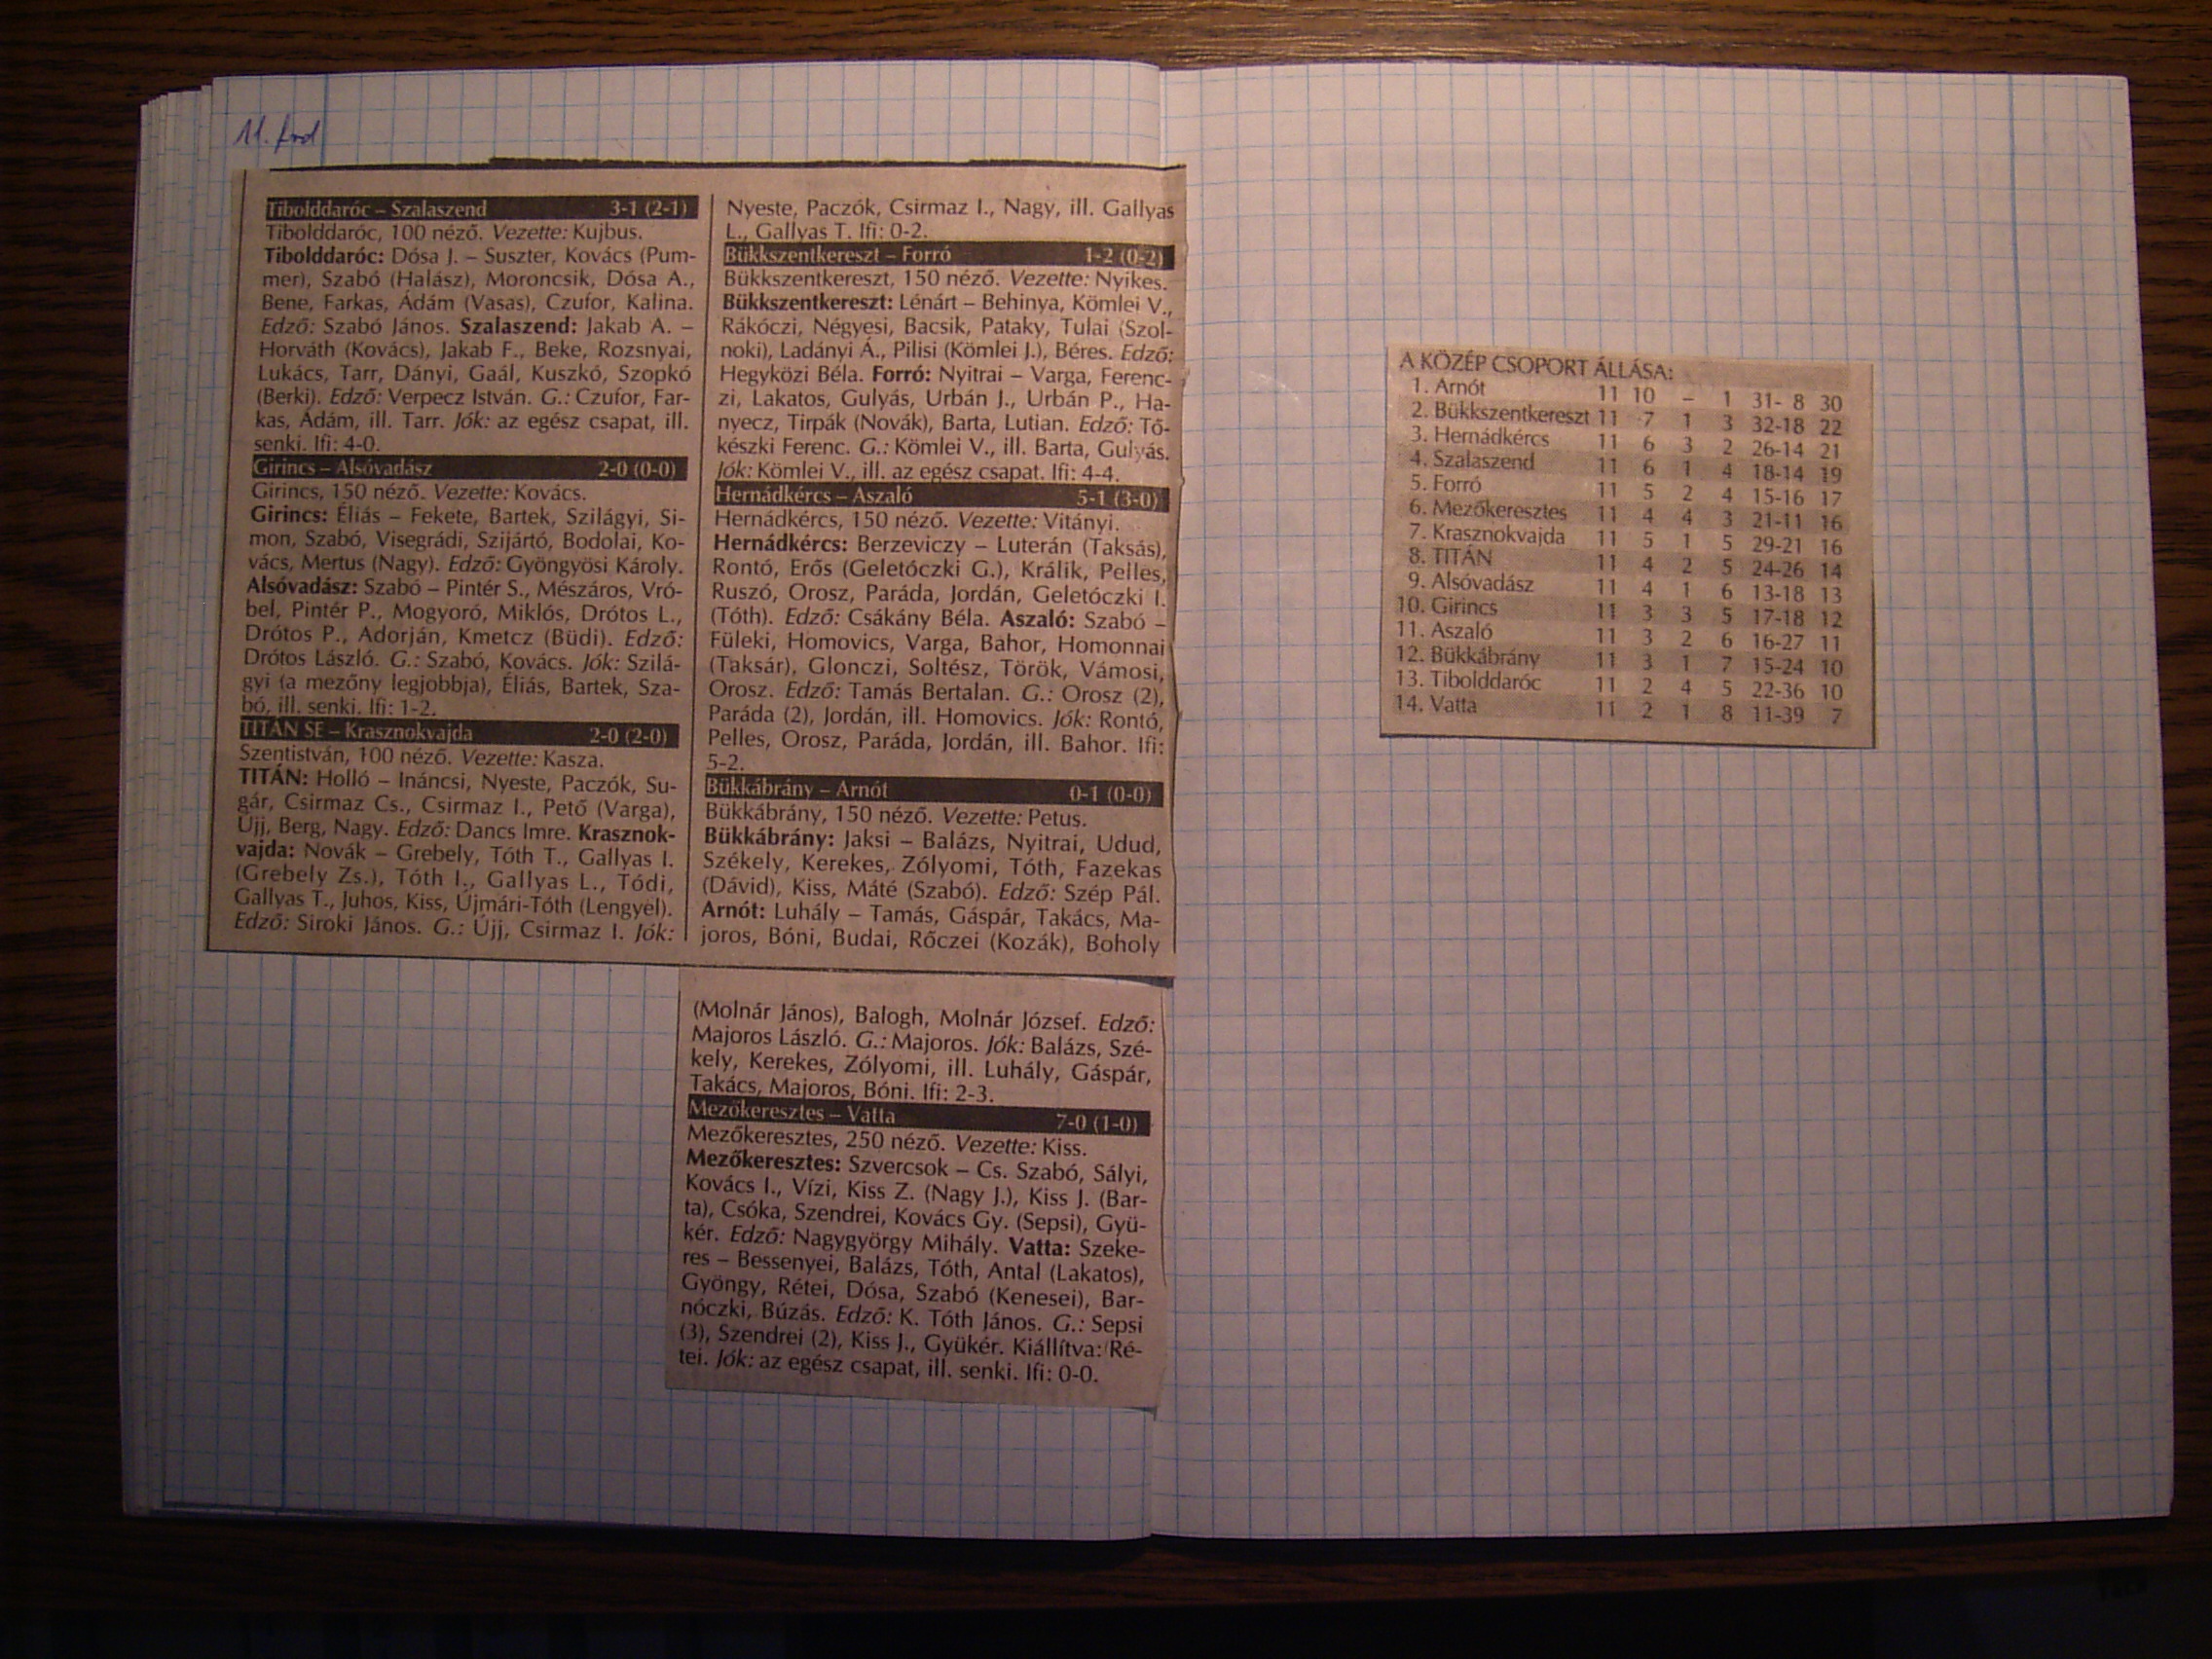 11. ford
Tibolddaróc – Szalaszend 3-1 (2-1)
Tibolddaróc, 100 néző. Vezette: Kujbus.
Tibolddaróc: Dósa J. – Suszter, Kovács (Pum-
mer), Szabó (Halász), Moroncsik, Dósa A.,
Bene, Farkas, Ádám (Vasas), Czufor, Kalina.
Edző: Szabó János. Szalaszend: Jakab A. –
Horváth (Kovács), Jakab F., Beke, Rozsnyai,
Lukács, Tarr, Dányi, Gaál, Kuszkó, Szopkó
(Berki). Edző: Verpecz István. G.: Czufor, Far-
kas, Ádám, ill. Tarr. Jók: az egész csapat, ill.
senki. Ifi: 4-0.
Girincs – Alsóvadász 2-0 (0-0)
Girincs, 150 néző. Vezette: Kovács.
Girincs: Éliás – Fekete, Bartek, Szilágyi, Si-
mon, Szabó, Visegrádi, Szijártó, Bodolai, Ko-
vács, Mertus (Nagy). Edző: Gyöngyösi Károly.
Alsóvadász: Szabó – Pintér S., Mészáros, Vró-
bel, Pintér P., Mogyoró, Miklós, Drótos L.,
Drótos P., Adorján, Kmetcz (Büdi). Edző:
Drótos László. G.: Szabó, Kovács. Jók: Szilá-
gyi (a mezőny legjobbja), Éliás, Bartek, Sza-
bó, ill. senki. Ifi: 1-2.
TITÁN SE – Krasznokvajda 2-0 (2-0)
Szentistván, 100 néző. Vezette: Kasza.
TITÁN: Holló – Ináncsi, Nyeste, Paczók, Su-
gár, Csirmaz Cs., Csirmaz I., Pető (Varga),
Ujj, Berg, Nagy. Edző: Dancs Imre. Krasznok-
vajda: Novák – Grebely, Tóth T., Gallyas I.
(Grebely Zs.), Tóth I., Gallyas L., Tódi,
Gallyas T., Juhos, Kiss, Újmári-Tóth (Lengyel).
Edző: Siroki János. G.: Újj, Csirmaz I. Jók:
Nyeste, Paczók, Csirmaz I., Nagy, ill. Gallyas
L., Gallyas T. Ifi: 0-2.
Bükkszentkereszt – Forró 1-2 (0-2)
Bükkszentkereszt, 150 néző. Vezette: Nyikes.
Bükkszentkereszt: Lénárt – Behinya, Kömlei V.,
Rákóczi, Négyesi, Bacsik, Pataky, Tulai (Szol-
noki), Ladányi Á., Pilisi (Kömlei J.), Béres. Edző:
Hegyközi Béla. Forró: Nyitrai – Varga, Ferenc-
zi, Lakatos, Gulyás, Urbán J., Urbán P., Ha-
nyecz, Tirpák (Novák), Barta, Lutian. Edző: Tő-
készki Ferenc. G.: Kömlei V., ill. Barta, Gulyás.
Jók: Kömlei V., ill. az egész csapat. Ifi: 4-4.
Hernádkércs – Aszaló 5-1 (3-0)
Hernádkércs, 150 néző. Vezette: Vitányi.
Hernádkércs: Berzeviczy – Luterán (Taksás),
Rontó, Erős (Geletóczki G.), Králik, Pelles,
Ruszó, Orosz, Paráda, Jordán, Geletóczki I.
(Tóth). Edző: Csákány Béla. Aszaló: Szabó –
Füleki, Homovics, Varga, Bahor, Homonnai
(Taksár), Glonczi, Soltész, Török, Vámosi,
Orosz. Edző: Tamás Bertalan. G.: Orosz (2),
Paráda (2), Jordán, ill. Homovics. Jók: Rontó,
Pelles, Orosz, Paráda, Jordán, ill. Bahor. Ifi:
5-2.
Bükkábrány – Arnót 0-1 (0-0)
Bükkábrány, 150 néző. Vezette: Petus.
Bükkábrány: Jaksi – Balázs, Nyitrai, Udud,
Székely, Kerekes, Zólyomi, Tóth, Fazekas
(Dávid), Kiss, Máté (Szabó). Edző: Szép Pál.
Arnót: Luhály – Tamás, Gáspár, Takács, Ma-
joros, Bóni, Budai, Rőczei (Kozák), Boholy
(Molnár János), Balogh, Molnár József. Edző:
Majoros László. G.: Majoros. Jók: Balázs, Szé-
kely, Kerekes, Zólyomi, ill. Luhály, Gáspár,
Takács, Majoros, Bóni. Ifi: 2-3.
Mezőkeresztes – Vatta 7-0 (1-0)
Mezőkeresztes, 250 néző. Vezette: Kiss.
Mezőkeresztes: Szvercsok – Cs. Szabó, Sályi,
Kovács I., Vízi, Kiss Z. (Nagy J.), Kiss J. (Bar-
ta), Csóka, Szendrei, Kovács Gy. (Sepsi), Gyü-
kér. Edző: Nagygyörgy Mihály. Vatta: Szeke-
res – Bessenyei, Balázs, Tóth, Antal (Lakatos),
Gyöngy, Rétei, Dósa, Szabó (Kenesei), Bar-
nóczki, Búzás. Edző: K. Tóth János. G.: Sepsi
(3), Szendrei (2), Kiss J., Gyükér. Kiállítva: Ré-
tei. Jók: az egész csapat, ill. senki. Ifi: 0-0.
A KÖZÉP CSOPORT ÁLLÁSA:
1. Arnót 11 10 – 1 31- 8 30
2. Bükkszentkereszt 11 7 1 3 32-18 22
3. Hernádkércs 11 6 3 2 26-14 21
4. Szalaszend 11 6 1 4 18-14 19
5. Forró 11 5 2 4 15-16 17
6. Mezőkeresztes 11 4 4 3 21-11 16
7. Krasznokvajda 11 5 1 5 29-21 16
8. TITÁN 11 4 2 5 24-26 14
9. Alsóvadász 11 4 1 6 13-18 13
10. Girincs 11 3 3 5 17-18 12
11. Aszaló 11 3 2 6 16-27 11
12. Bükkábrány 11 3 1 7 15-24 10
13. Tibolddaróc 11 2 4 5 22-36 10
14. Vatta 11 2 1 8 11-39 7